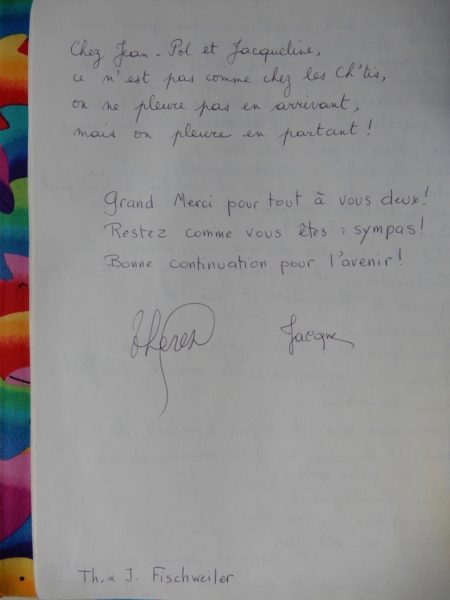 Chez Jean-Pol et Jacqueline,
ce n'est pas comme chez les Ch'tis,
on ne pleure pas en arrivant,
mais on pleure en partant !
Grand Merci pour tout à vous deux!
Restez comme vous êtes : sympas!
Bonne continuation pour l'avenir!
Jacque
Th. & J. Fischweiler